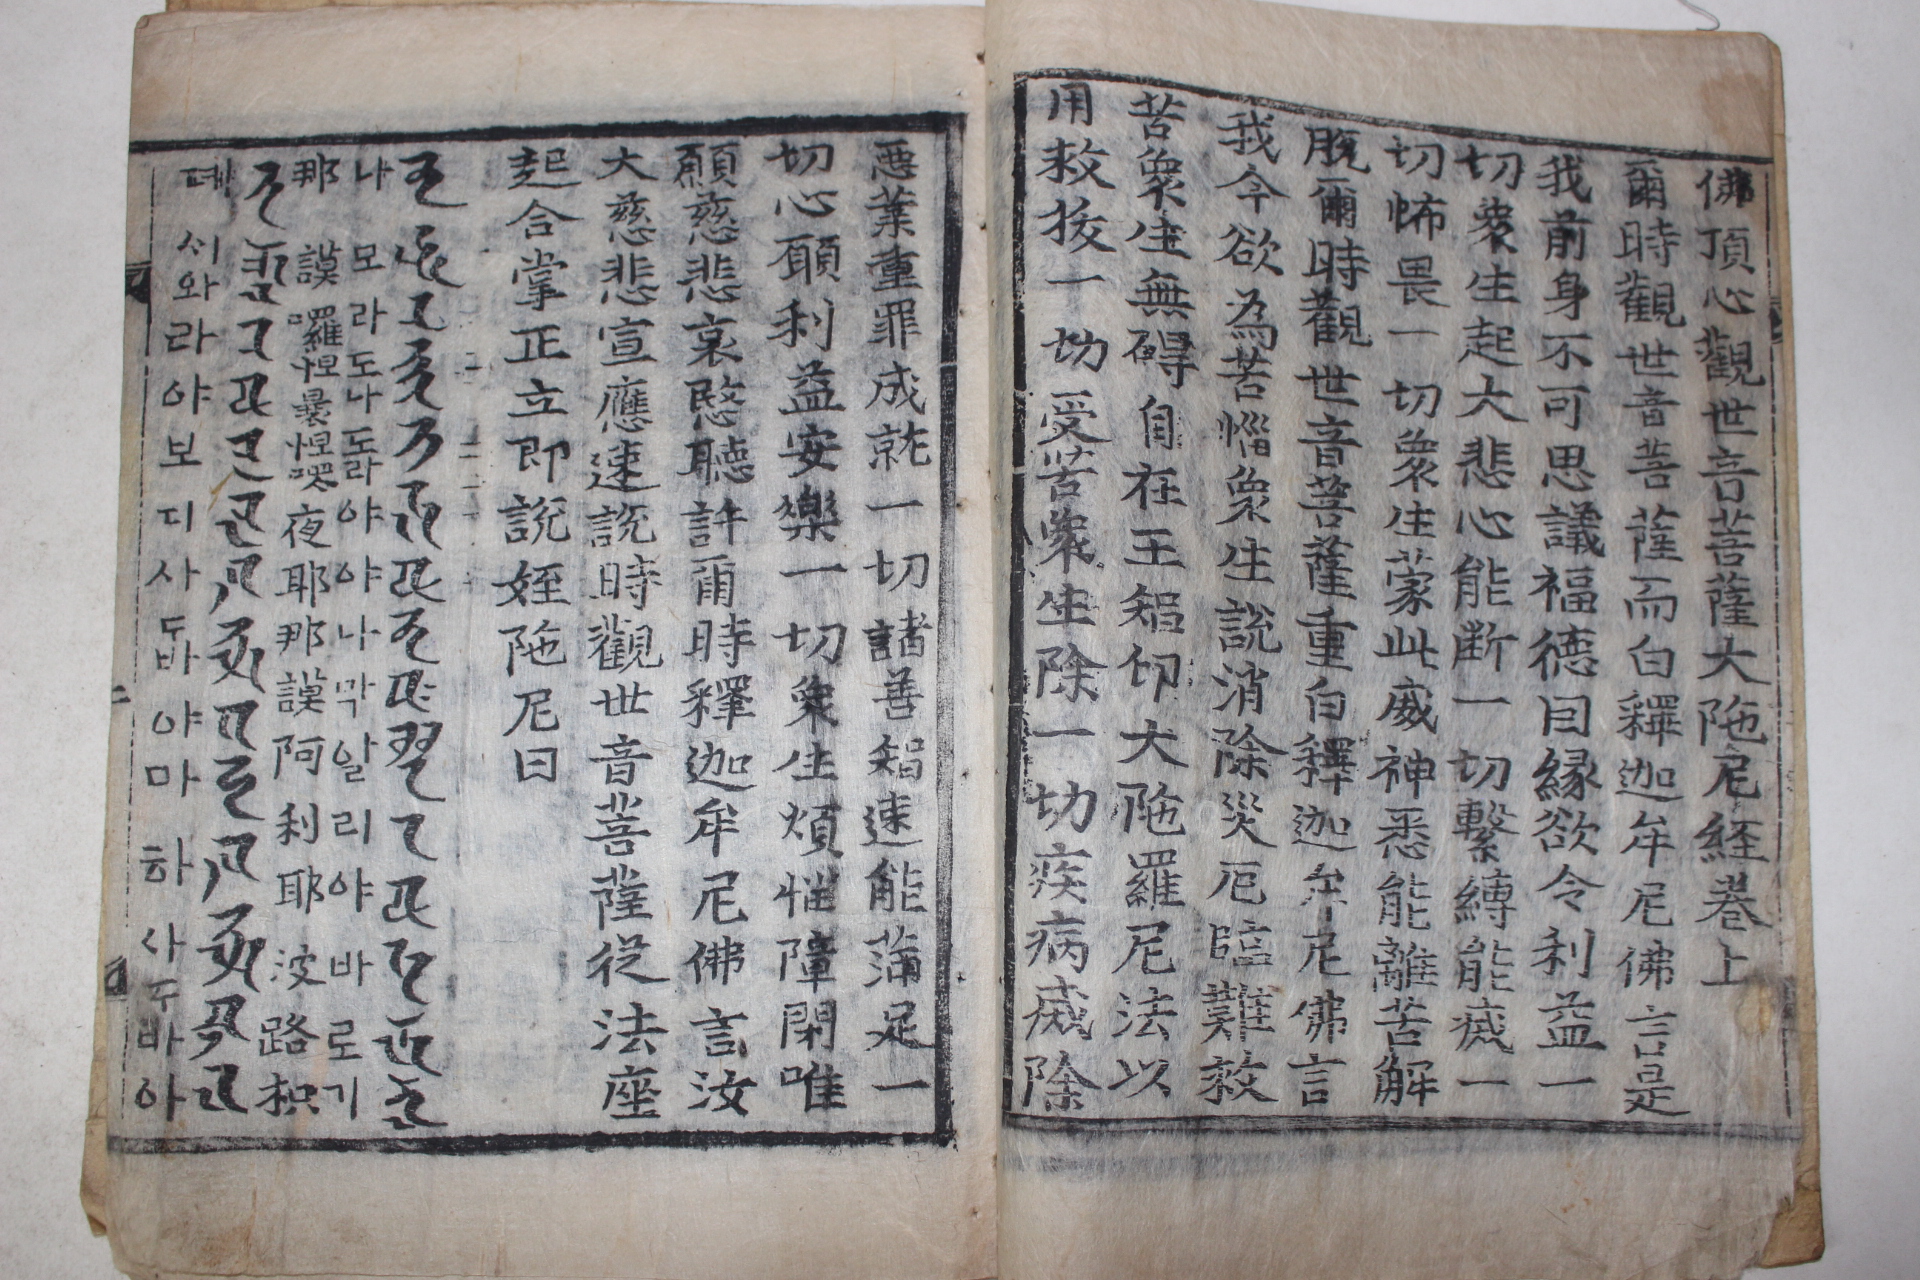 佛頂心觀世音菩薩大陁尼経卷上
爾時觀世音菩薩而白釋迦牟尼佛言是
我前身不可思議福德因緣欲令利益一
切衆生起大悲心能断一切繫縛能滅一
切怖畏一切衆生蒙此威神悉能離苦解
脫爾時觀世音菩薩重白釋迦牟尼佛言
我今欲為苦惱衆生說消除災厄臨難救
苦衆生無礙自在王智印大陁羅尼法以
用救拔一切受苦衆生除一切疾病滅除
惡業重罪成就一切諸善智速能滿足一
切心願利益安樂一切衆生煩惱障閉唯
願慈悲哀愍聽許爾時釋迦牟尼佛言汝
大慈悲宣應速說時觀世音菩薩從法座
起合掌正立即說姪陁尼曰
나모라도나도라야야나막알리야바로기
那謨囉怛曩怛哭夜耶那謨阿利耶波路枳
뎨시와라야보디사두바야마하사두바아